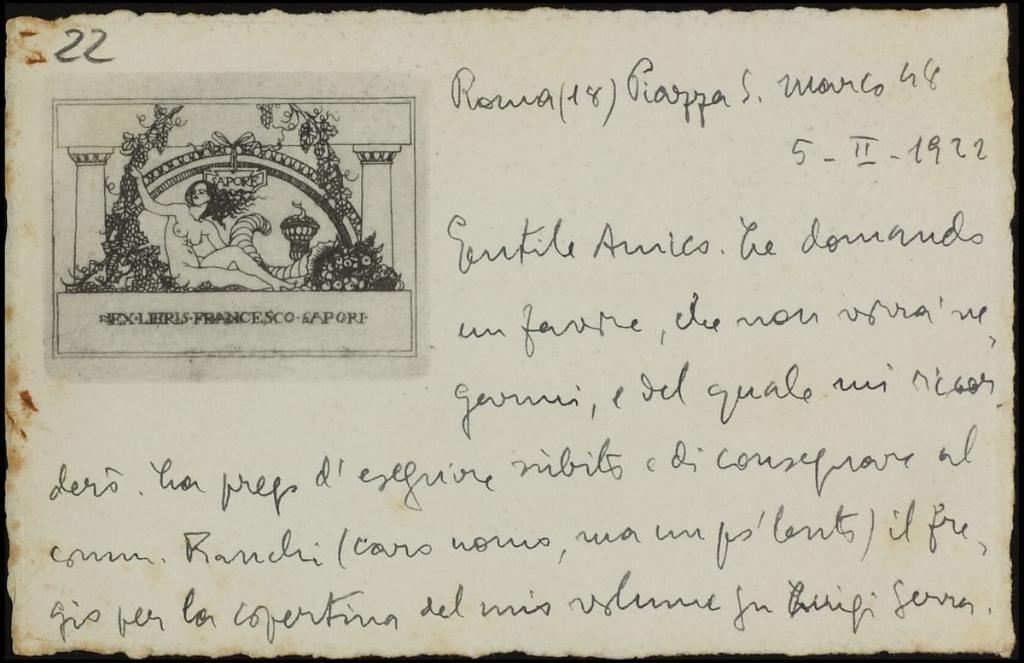 22
SAPORI
EX·LIBRIS·FRANCESCO·SAPORI·
Roma (18) Piazza S. Marco 48
5 - II - 1922
Gentile Amico. Le domando
un favore, che non vorrà ne,
garmi, e del quale mi ricor,
derò. La prego d'eseguire sùbito e di consegnare al
comm. Bianchi (caro uomo, ma un po' lento) il fre,
gio per la copertina del mio volume su Luigi Serra.